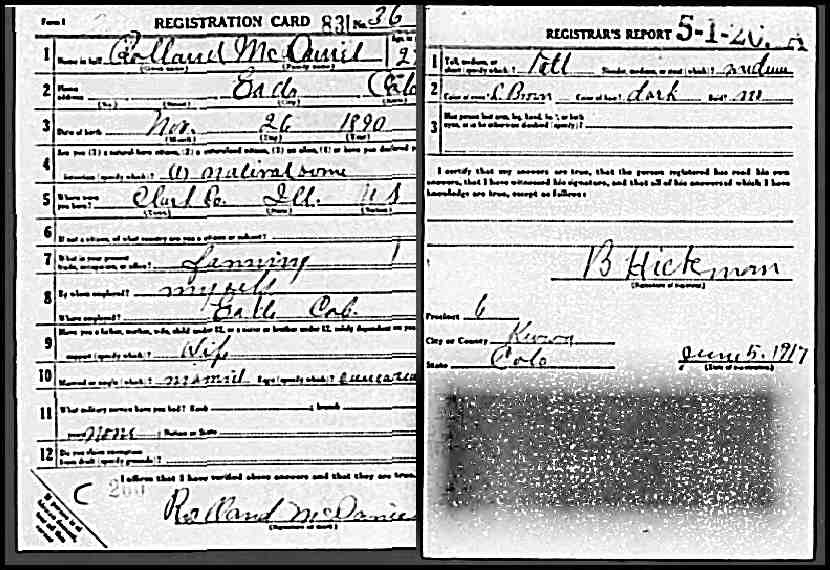 Form 1 REGISTRATION CARD 831 No. 36
1 Name in full Rolland McDaniel 2
(Given name) (Family name)
2 Home address Eads Colo
(No.) (Street) (City) (State)
3 Date of birth Nov. 26 1890
(Month) (Day) (Year)
Are you (1) a natural-born citizen, (2) a naturalized citizen, (3) an alien, (4) or have you declared your
4 intention (specify which)? (1) natural born
5 Where were you born? Clark Co. Ill. U S
(Town) (State) (Nation)
6 If not a citizen, of what country are you a citizen or subject?
7 What is your present trade, occupation, or office? farming
8 By whom employed? myself
Where employed? Eads Colo.
9 Have you a father, mother, wife, child under 12, or a sister or brother under 12, solely dependent on you
support (specify which)? Wife
10 Married or single (which)? married Race (specify which)? Caucasian
11 What military service have you had? Rank branch
years none Nation or State
12 Do you claim exemption from draft (specify grounds)?
I affirm that I have verified above answers and that they are true.
C 200
Rolland McDaniel
(Signature or mark)
REGISTRAR'S REPORT 5-1-20. A
1 Tall, medium, or short (specify which)? Tall Slender, medium, or stout (which)? medium
2 Color of eyes? L. Brown Color of hair? dark Bald? no
3 Has person lost arm, leg, hand, foot, or both eyes, or is he otherwise disabled (specify)?
I certify that my answers are true, that the person registered has read his own
answers, that I have witnessed his signature, and that all of his answers of which I have
knowledge are true, except as follows:
B Hickman
(Signature of registrar)
Precinct 6
City or County Kiowa
State Colo June 5, 1917
(Date of registration)